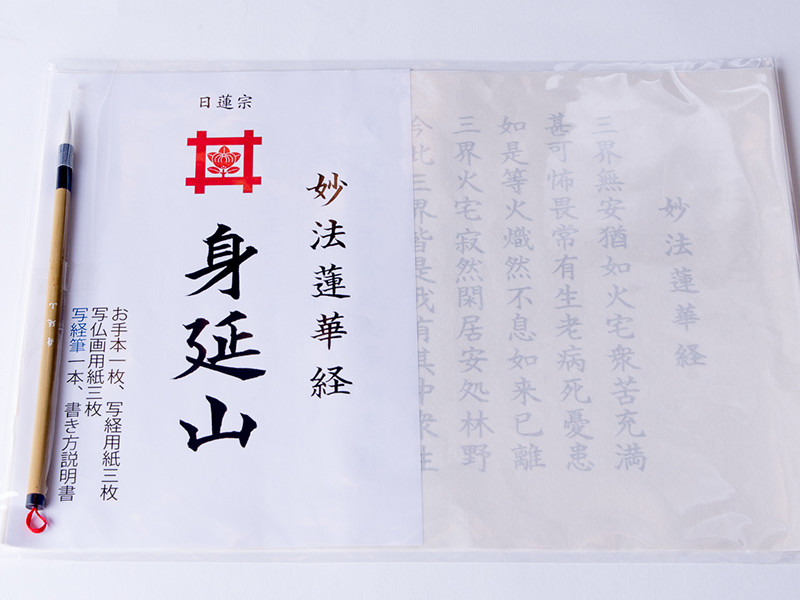 妙法蓮華経
三界無安猶如火宅衆苦充満
甚可怖畏常有生老病死憂患
如是等火熾然不息如来已離
三界火宅寂然閑居安処林野
今此三界皆是我有其中衆生
妙法蓮華経
日蓮宗
身延山
お手本一枚、写経用紙三枚
写仏画用紙三枚
写経筆一本、書き方説明書